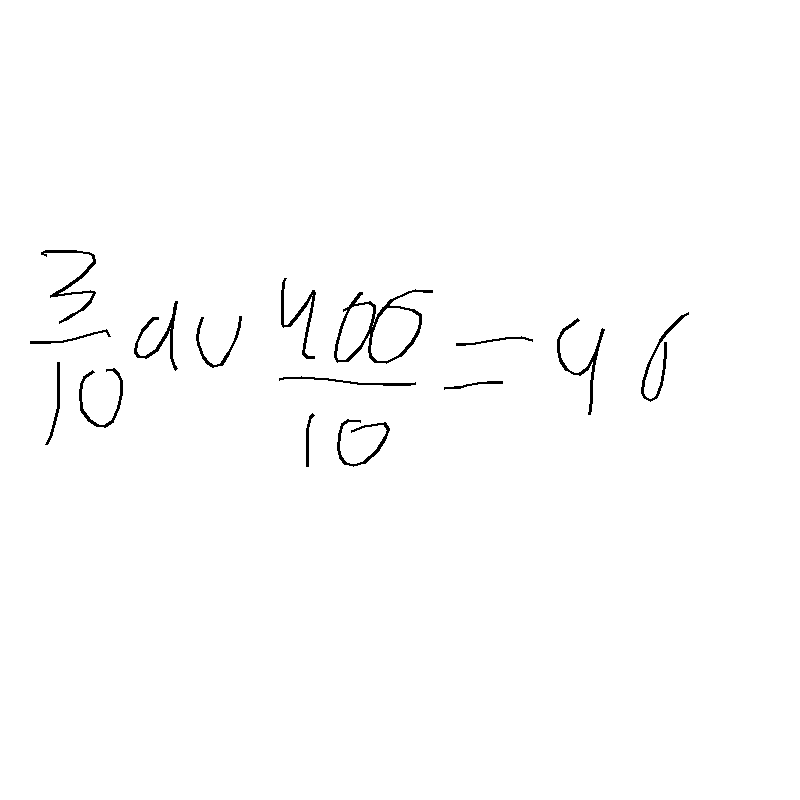 3/10 av 400/10 = 40